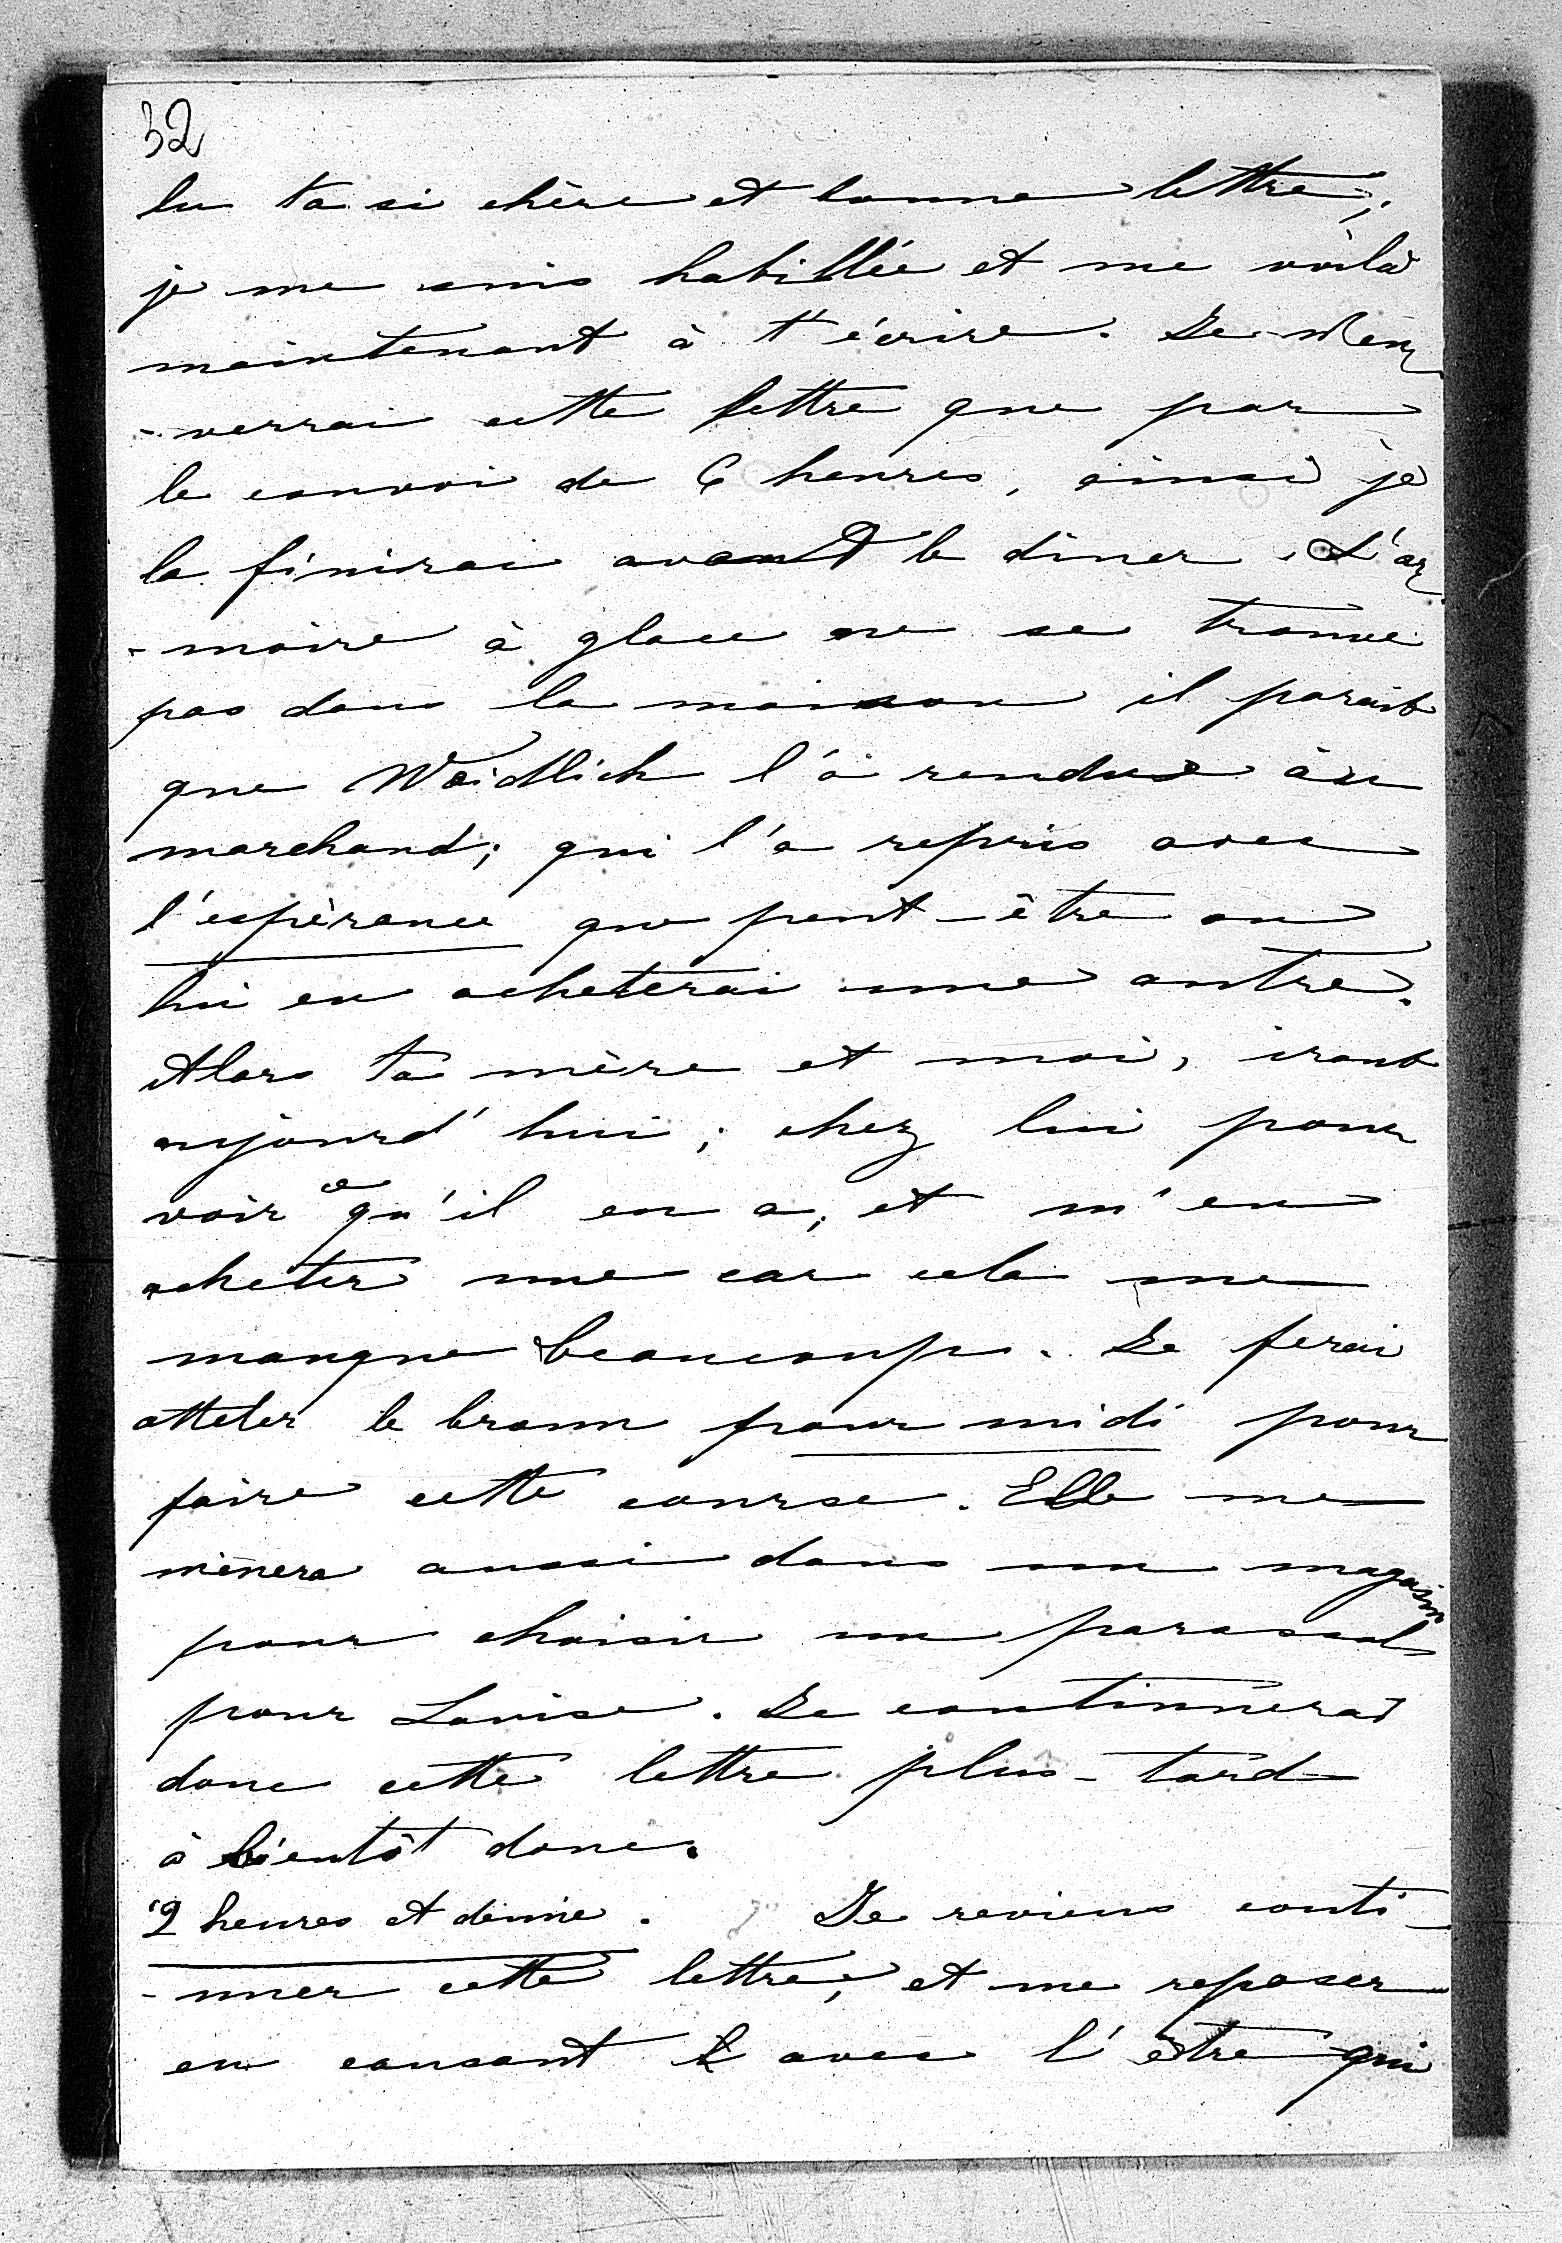 32
lu ta si chère et bonne lettre,
je me suis habillée et me voilà
maintenant à t'écrire. Je n'en-
-verrai cette lettre que par
le convoi de 6 heures, ainsi je
la finirai avant le dîner. L'ar-
-moire à glace ne se trouve
pas dans la maison il parait
que Weidlich l'a rendue au
marchand; qui l'a repris avec
l'espèrance que peut-être on
lui en acheterai une autre.
Alors ta mère et moi, iront
aujourd'hui; chez lui pour
voir ce qu'il en a, et m'en
acheter une car cela me
manque beaucoup. Je ferai
atteler le broum pour midi pour
faire cette course. Elle me
mènera aussi dans un magasin
pour choisir un parasol
pour Louise. Je continuerai
donc cette lettre plus-tard
à bientôt donc.
2 heures et demie. Je reviens conti-
-nuer cette lettre, et me reposer
en causant avec l'être qui